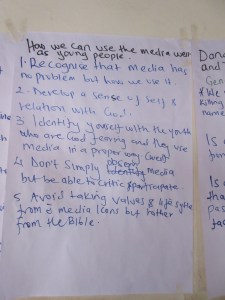 How we can use the media well
as young people.
1. Recognise that media has
no problem but how we use it.
2. Develop a sense of self &
relation with God.
3. Identify yourself with the youth
who are God fearing and they use
media in a proper way
4. Don't simply observe media
but be able to critic & participate.
5. Avoid taking values & life style
from media Icons but rather
from the Bible.
Dan
and
Gen
# We
Killing
name
Is
Is
tha
pas
fac